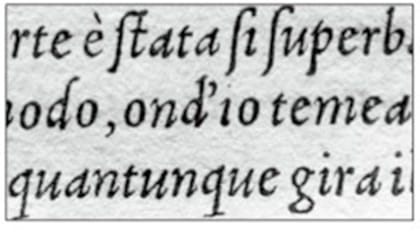 rte è ſtata ſi ſuperb
odo, ond'io temea
quantunque gira i